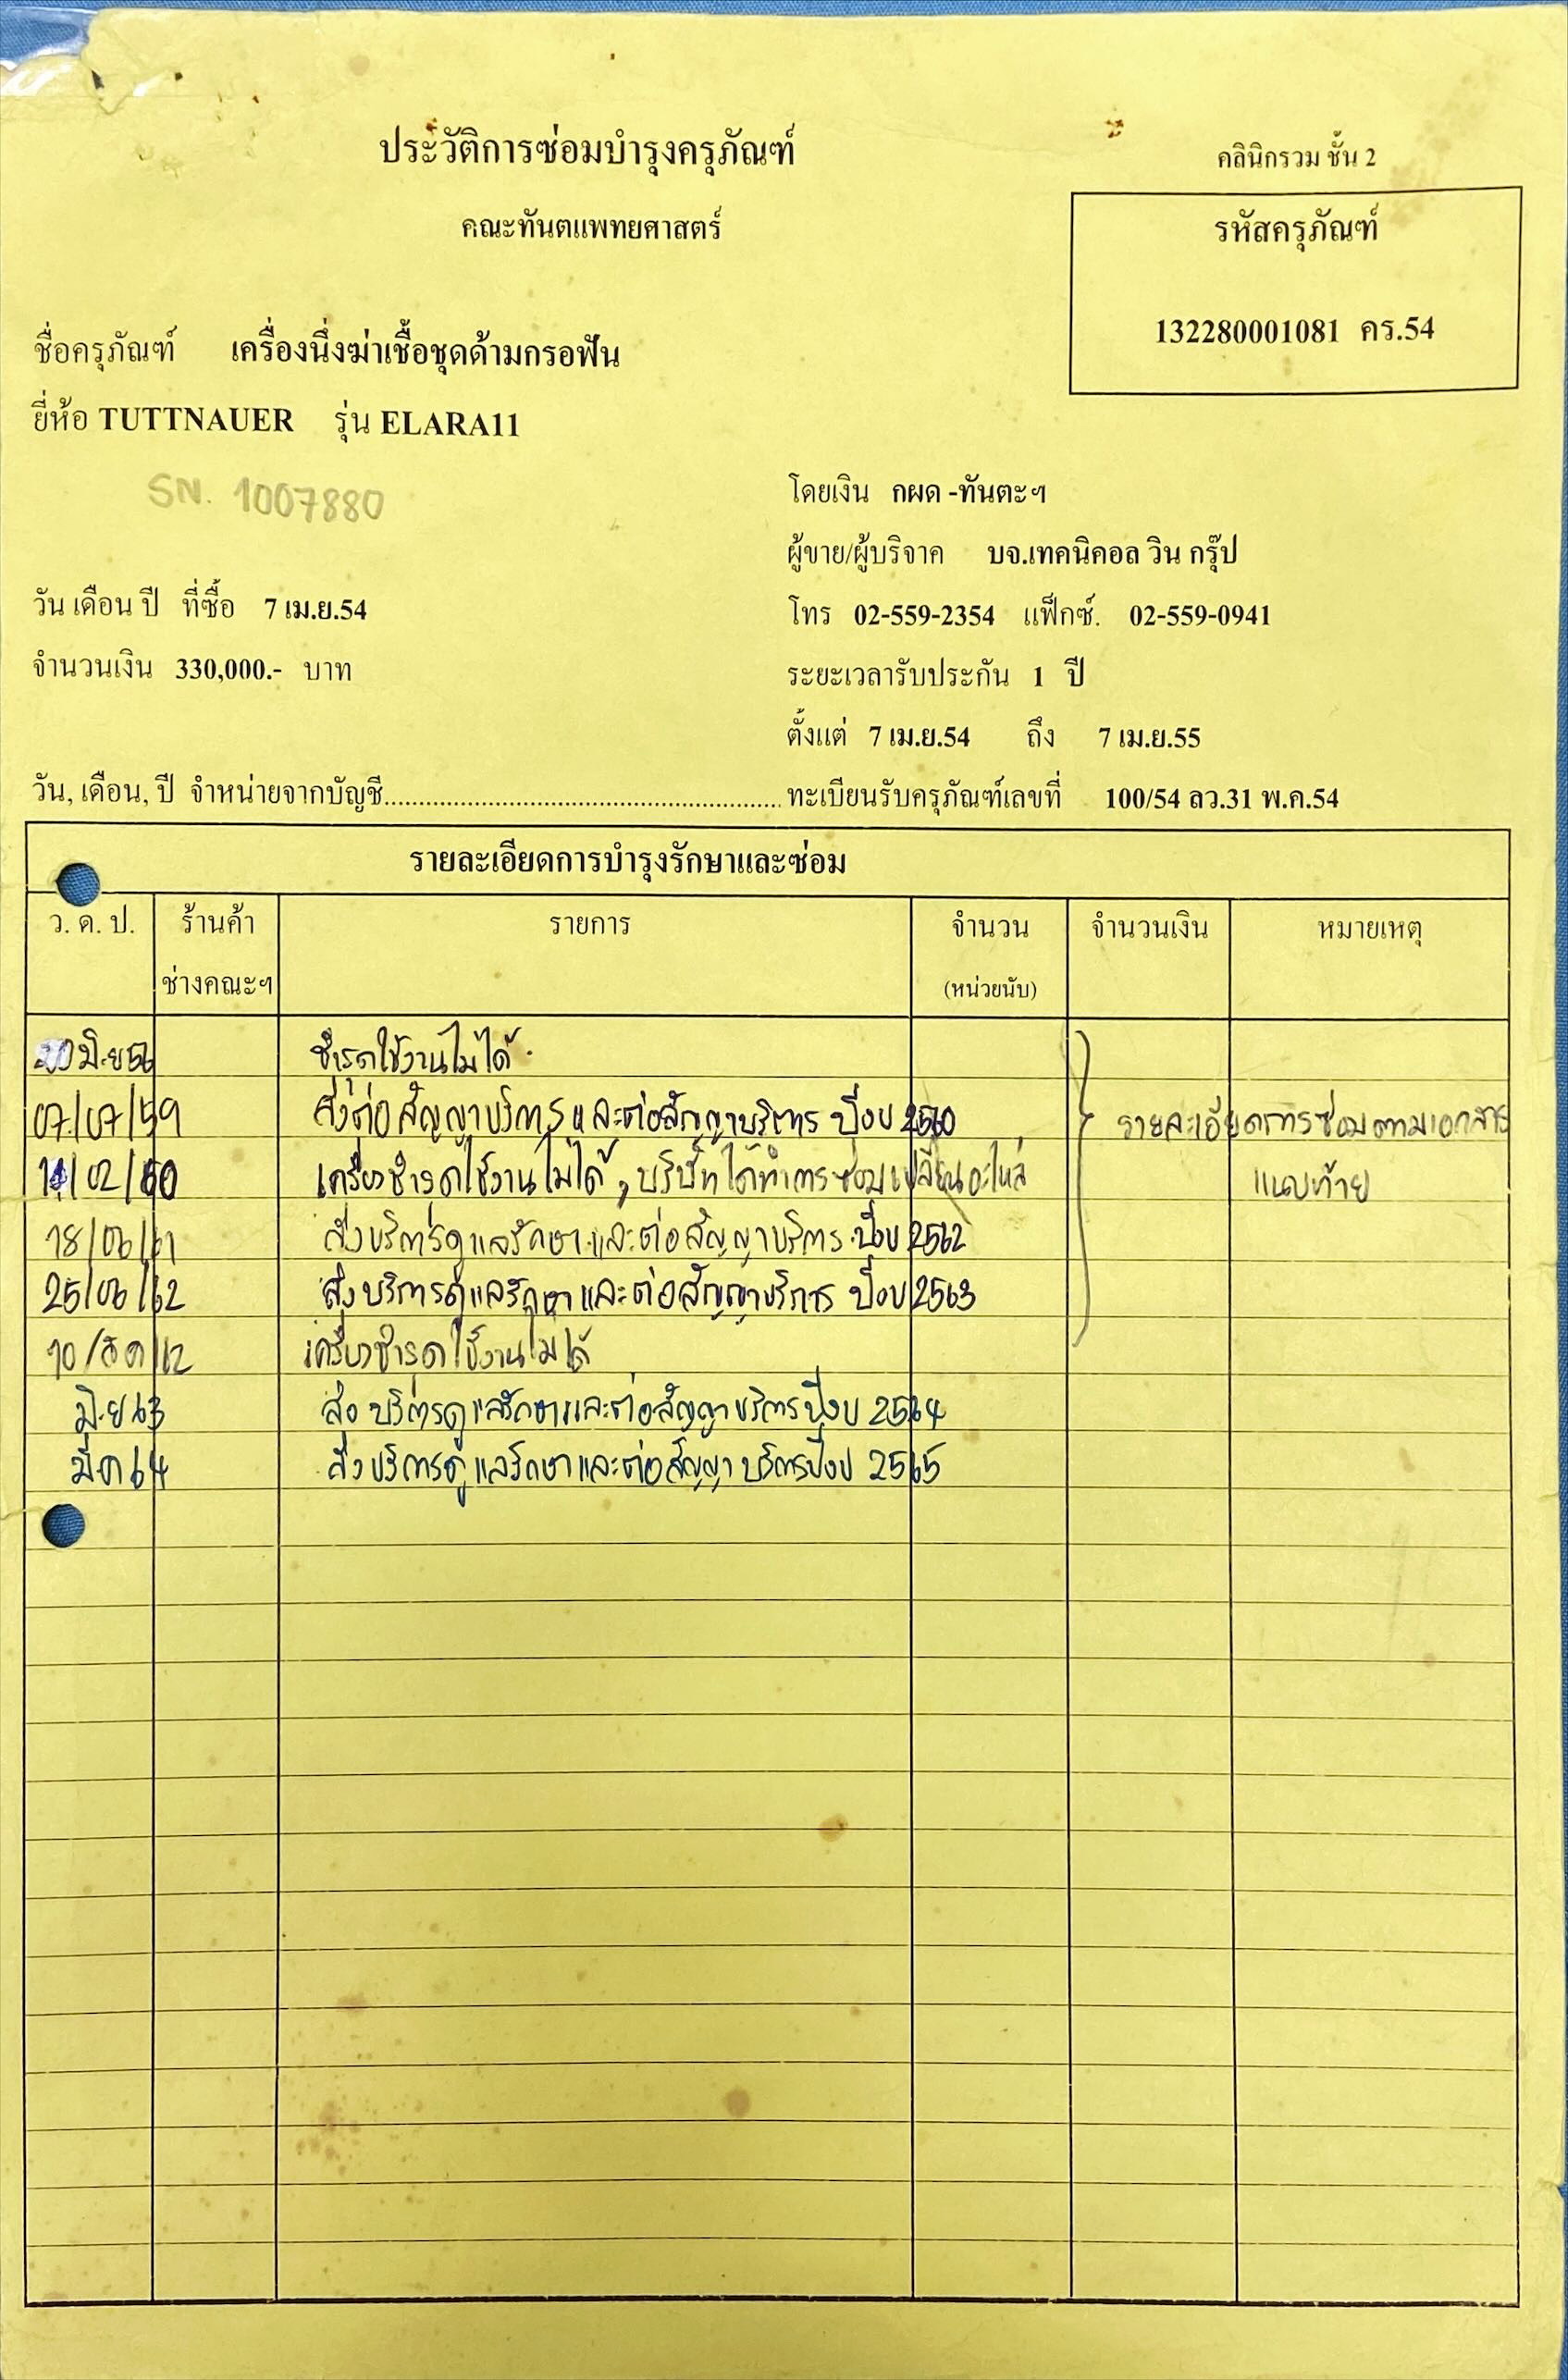 ประวัติการซ่อมบำรุงครุภัณฑ์
คลินิกรวม ชั้น 2
คณะทันตแพทยศาสตร์
รหัสครุภัณฑ์
132280001081 คร.54
ชื่อครุภัณฑ์ เครื่องนึ่งฆ่าเชื้อชุดด้ามกรอฟัน
ยี่ห้อ TUTTNAUER รุ่น ELARA11
SN. 1007880
โดยเงิน กผด -ทันตะฯ
ผู้ขาย/ผู้บริจาค บจ.เทคนิคอล วิน กรุ๊ป
วัน เดือน ปี ที่ซื้อ 7 เม.ย.54
โทร 02-559-2354 แฟ็กซ์. 02-559-0941
จำนวนเงิน 330,000.- บาท
ระยะเวลารับประกัน 1 ปี
ตั้งแต่ 7 เม.ย.54 ถึง 7 เม.ย.55
วัน, เดือน, ปี จำหน่ายจากบัญชี........................................................ ทะเบียนรับครุภัณฑ์เลขที่ 100/54 ลว.31 พ.ค.54
รายละเอียดการบำรุงรักษาและซ่อม
ว. ด. ป. ร้านค้า รายการ จำนวน จำนวนเงิน หมายเหตุ
ช่างคณะฯ (หน่วยนับ)
มิ.ย 56 ชำรุดใช้งานไม่ได้
07/07/59 ส่งต่อสัญญาบริการและต่อสัญญาบริการ ปีงบ 2560 รายละเอียดการซ่อมตามเอกสาร
/02/60 เครื่องชำรุดใช้งานไม่ได้, บริษัทได้ทำการซ่อมเปลี่ยนอะไหล่ แนบท้าย
18/06/61 ส่งบริการดูแลรักษาและต่อสัญญาบริการ ปีงบ 2562
25/06/62 ส่งบริการดูแลรักษาและต่อสัญญาบริการ ปีงบ 2563
10/ธค/62 เครื่องชำรุดใช้งานไม่ได้
มิ.ย 63 ส่งบริการดูแลรักษาและต่อสัญญาบริการปีงบ 2564
มีค 64 ส่งบริการดูแลรักษาและต่อสัญญาบริการปีงบ 2565